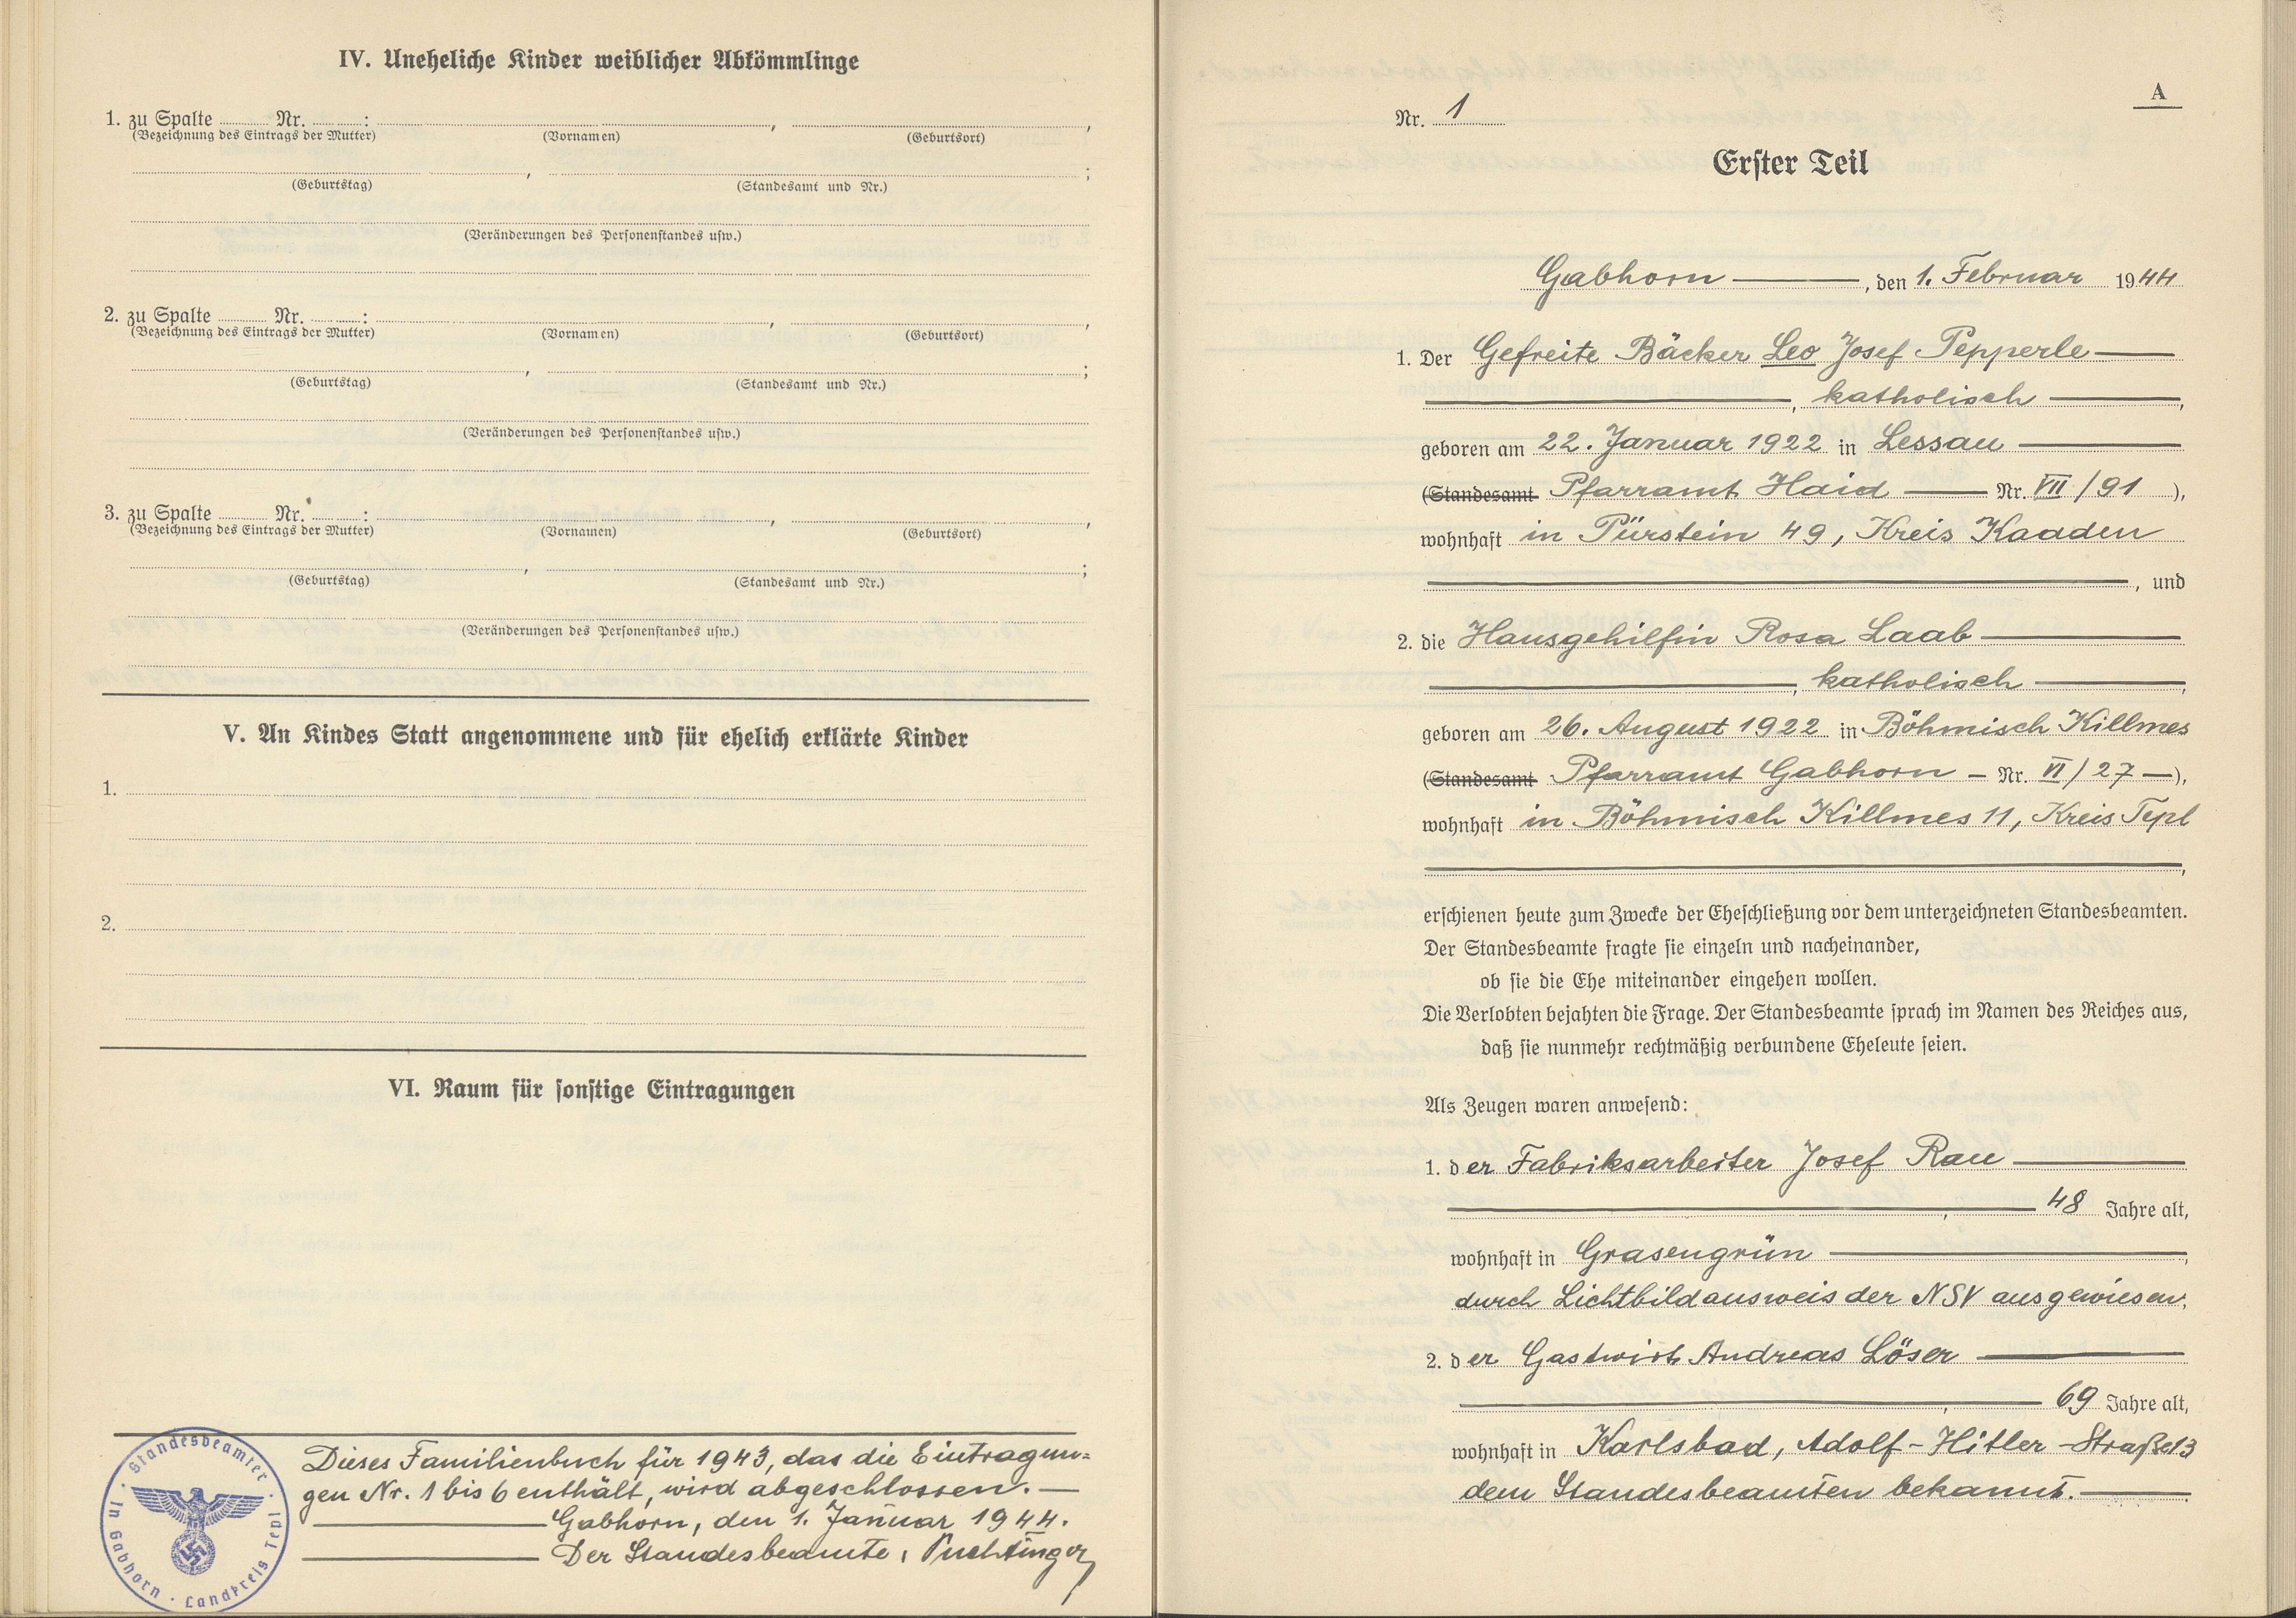 IV. Uneheliche Kinder weiblicher Abkömmlinge
1. zu Spalte Nr. : , ,
(Bezeichnung des Eintrags der Mutter) (Vornamen) (Geburtsort)
, ;
(Geburtstag) (Standesamt und Nr.)
(Veränderungen des Personenstandes usw.)
2. zu Spalte Nr. : , ,
(Bezeichnung des Eintrags der Mutter) (Vornamen) (Geburtsort)
, ;
(Geburtstag) (Standesamt und Nr.)
(Veränderungen des Personenstandes usw.)
3. zu Spalte Nr. : , ,
(Bezeichnung des Eintrags der Mutter) (Vornamen) (Geburtsort)
, ;
(Geburtstag) (Standesamt und Nr.)
(Veränderungen des Personenstandes usw.)
V. An Kindes Statt angenommene und für ehelich erklärte Kinder
1.
2.
VI. Raum für sonstige Eintragungen
Dieses Familienbuch für 1943, das die Eintragun=
gen Nr. 1 bis 6 enthält, wird abgeschlossen. —
Gabhorn, den 1. Januar 1944.
Der Standesbeamte, Puchtinger
Standesbeamter · in Gabhorn · Landkreis Tepl ·
A
Nr. 1
Erster Teil
Gabhorn —, den 1. Februar 1944
1. Der Gefreite Bäcker Leo Josef Pepperle —
—, katholisch —,
geboren am 22. Januar 1922 in Lessau —
(Standesamt Pfarramt Haid — Nr. VII / 91 ),
wohnhaft in Pürstein 49, Kreis Kaaden
—, und
2. die Hausgehilfin Rosa Laab —
—, katholisch —,
geboren am 26. August 1922 in Böhmisch Killmes
(Standesamt Pfarramt Gabhorn — Nr. VI / 27 —),
wohnhaft in Böhmisch Killmes 11, Kreis Tepl
—,
erschienen heute zum Zwecke der Eheschließung vor dem unterzeichneten Standesbeamten.
Der Standesbeamte fragte sie einzeln und nacheinander,
ob sie die Ehe miteinander eingehen wollen.
Die Verlobten bejahten die Frage. Der Standesbeamte sprach im Namen des Reiches aus,
daß sie nunmehr rechtmäßig verbundene Eheleute seien.
Als Zeugen waren anwesend:
1. der Fabriksarbeiter Josef Rau —
—, — 48 Jahre alt,
wohnhaft in Grasengrün —,
durch Lichtbildausweis der NSV ausgewiesen.
2. der Gastwirt Andreas Löser —
—, — 69 Jahre alt,
wohnhaft in Karlsbad, Adolf-Hitler-Straße 13
dem Standesbeamten bekannt. —.